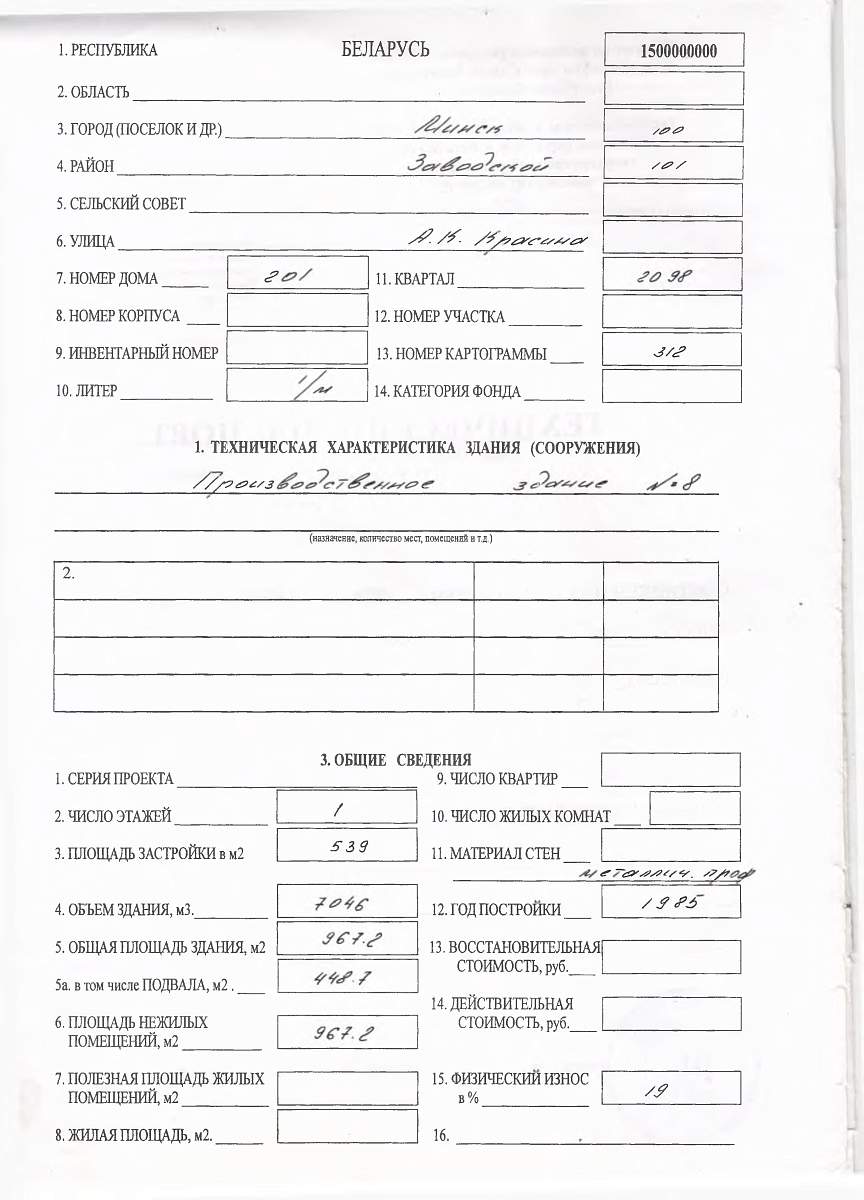 1. РЕСПУБЛИКА БЕЛАРУСЬ 1500000000
2. ОБЛАСТЬ
3. ГОРОД (ПОСЕЛОК И ДР.) Минск 100
4. РАЙОН Заводской 101
5. СЕЛЬСКИЙ СОВЕТ
6. УЛИЦА А.К. Красина
7. НОМЕР ДОМА 201 11. КВАРТАЛ 2098
8. НОМЕР КОРПУСА 12. НОМЕР УЧАСТКА
9. ИНВЕНТАРНЫЙ НОМЕР 13. НОМЕР КАРТОГРАММЫ 312
10. ЛИТЕР 1/м 14. КАТЕГОРИЯ ФОНДА
1. ТЕХНИЧЕСКАЯ ХАРАКТЕРИСТИКА ЗДАНИЯ (СООРУЖЕНИЯ)
Производственное здание №8
(назначение, количество мест, помещений и т.д.)
2.
3. ОБЩИЕ СВЕДЕНИЯ
1. СЕРИЯ ПРОЕКТА 9. ЧИСЛО КВАРТИР
2. ЧИСЛО ЭТАЖЕЙ 1 10. ЧИСЛО ЖИЛЫХ КОМНАТ
3. ПЛОЩАДЬ ЗАСТРОЙКИ в м2 539 11. МАТЕРИАЛ СТЕН
металлич. проф
4. ОБЪЕМ ЗДАНИЯ, м3. 7046 12. ГОД ПОСТРОЙКИ 1985
5. ОБЩАЯ ПЛОЩАДЬ ЗДАНИЯ, м2 967.2 13. ВОССТАНОВИТЕЛЬНАЯ
СТОИМОСТЬ, руб.
5а. в том числе ПОДВАЛА, м2 . 448.7
14. ДЕЙСТВИТЕЛЬНАЯ
6. ПЛОЩАДЬ НЕЖИЛЫХ СТОИМОСТЬ, руб.
ПОМЕЩЕНИЙ, м2 967.2
7. ПОЛЕЗНАЯ ПЛОЩАДЬ ЖИЛЫХ 15. ФИЗИЧЕСКИЙ ИЗНОС
ПОМЕЩЕНИЙ, м2 в % 19
8. ЖИЛАЯ ПЛОЩАДЬ, м2. 16.